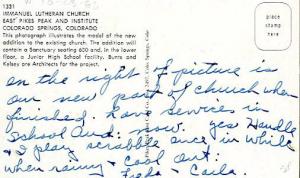 1331
IMMANUEL LUTHERAN CHURCH
EAST PIKES PEAK AND INSTITUTE
COLORADO SPRINGS, COLORADO
This photograph illustrates the model of the new
addition to the existing church. The addition will
contain a Sanctuary seating 600 and, in the lower
floor, a Junior High School facility. Burns and
Kelses are Architects for the project.
place
stamp
here
on the right of picture is
our new part of church when
finished. have services in
School Aud. now. yes
& I play scrabble once in while
when rainy & cool out.
Freda - Carla